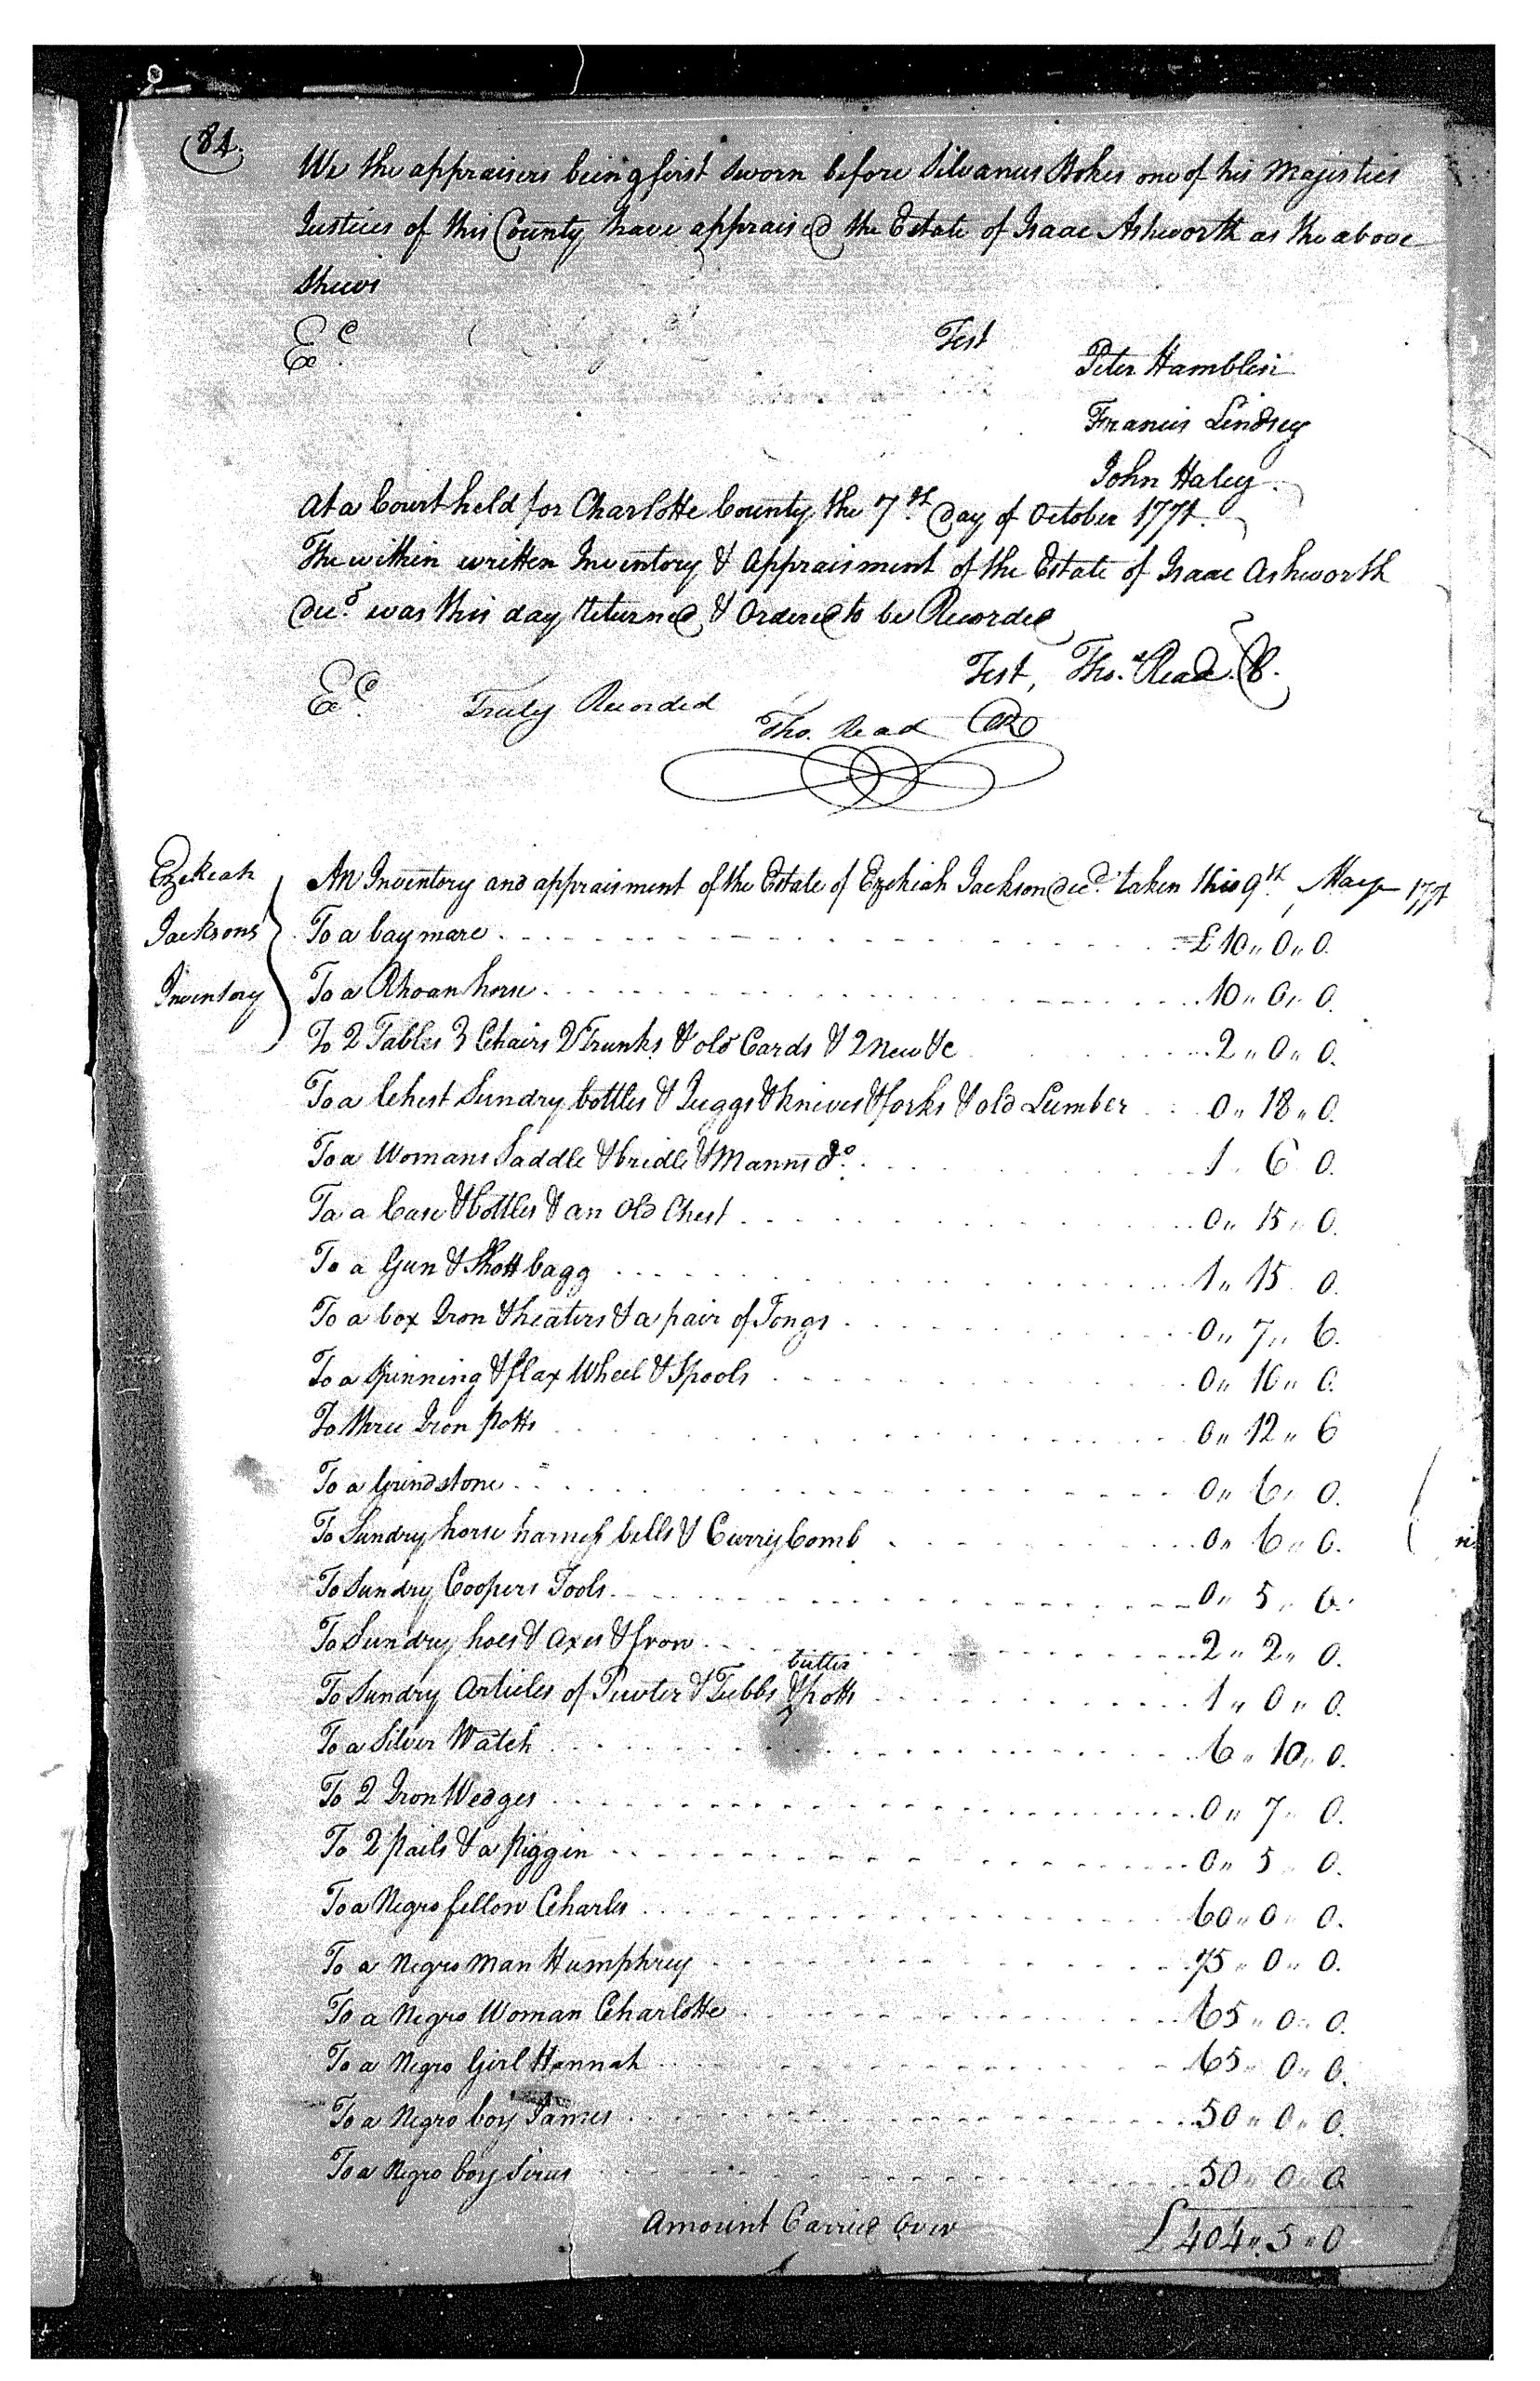 84.
We the appraisers being first sworn before Silvanus Stokes one of his Majesties
Justices of this County have appraised the Estate of Isaac Ashworth as the above
shews
Ed.
Test
Peter Hamblin
Francis Lindsey
John Haley.
At a Court held for Charlotte County the 7th. Day of October 1771.
The within written Inventory & Appraisment of the Estate of Isaac Ashworth
Decd. was this day Returned & Ordered to be Recorded
Test, Thos. Read.
Ed. Truly Recorded
Tho. Read
Ezekiah
Jacksons
Inventory
An Inventory and appraisment of the Estate of Ezekiah Jackson decd. taken this 9th. May 1771
To a bay mare £ 10 " 0 " 0.
To a Rhoan horse 10 " 0 " 0.
To 2 Tables 3 Chairs 2 Trunks & old Cards & 2 new &c 2 " 0 " 0.
To a Chest Sundry bottles & Juggs & knives & forks & old Lumber 0 " 18 " 0.
To a Womans Saddle & bridle & Manns do. 1 " 6 0.
To a Case & bottles & an Old Chest 0 " 15 " 0.
To a Gun & Shott bagg 1 " 15 0.
To a box Iron & heaters & a pair of Tongs 0 " 7 " 6.
To a Spinning & flax Wheel & Spools 0 " 10 " 0.
To three Iron potts 0 " 12 " 6
To a Grindstone 0 " 6 " 0.
To Sundry horse harness bells & Curry Comb 0 " 6 " 0.
To Sundry Coopers Tools 0 " 5 " 6.
To Sundry hoes & Axes & frow 2 " 2 " 0.
butter
To Sundry Articles of Pewter & Tubbs & potts 1 " 0 " 0.
To a Silver Watch 6 " 10 " 0.
To 2 Iron Wedges 0 " 7 " 0.
To 2 pails & a piggin 0 " 5 " 0.
To a Negro fellow Charles 60 " 0 " 0.
To a Negro Man Humphrey 75 " 0 " 0.
To a Negro Woman Charlotte 65 " 0 " 0.
To a Negro Girl Hannah 65 " 0 " 0.
To a Negro boy James 50 " 0 " 0.
To a Negro boy Sirus 50 " 0 " 0
Amount Carried Over £ 404 " 5 " 0